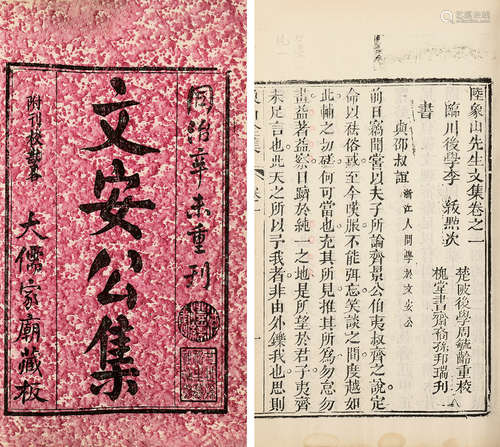 同治辛未重刊
文安公集
大儒家廟藏板
陸象山先生文集卷之一
臨川後學李紱點次
楚陂後學周毓齡重校
槐堂書齋裔孫邦瑞刊
書
與邵叔誼 浙江人問學於文安公
前日竊聞嘗以夫子所論齊景公伯夷叔齊之說定
命以祛俗惑至今嘆服不能弭忘笑談之間度越如
此輔之切磋何可當也充其所見推其所為勿怠勿
畫益著益察日躋於純一之地是所望於君子夷齊
未足言也此天之所以予我者非由外鑠我也思則